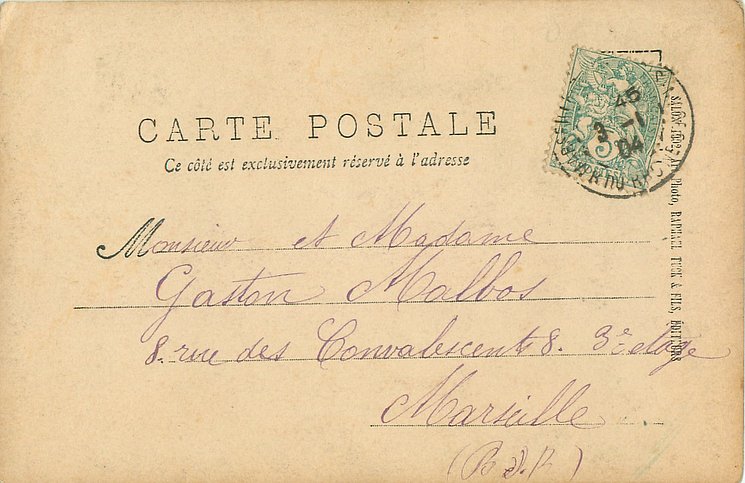 CARTE POSTALE
Ce côté est exclusivement réservé à l'adresse
Monsieur et Madame
Gaston Malbos
8. rue des Convalescents 8. 3e étage
Marseille
(B. d. R)
5
45
3 - 1
04
Photo, RAPHAEL TUCK & FILS, ÉDITEURS